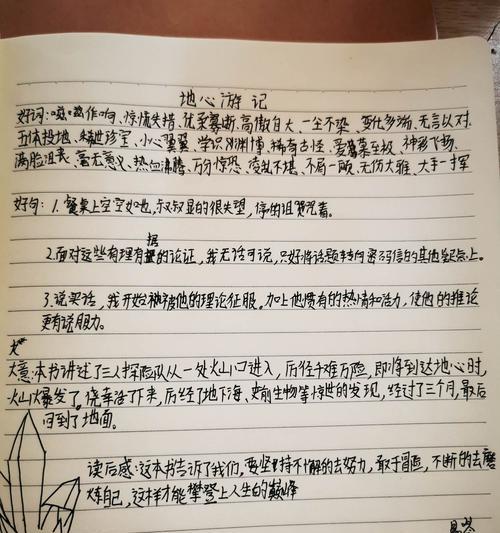 地心游记
好词：嗞嗞作响、惊慌失措、优柔寡断、高傲自大、一尘不染、变化多端、无言以对、
五体投地、稀世珍宝、小心翼翼、学识渊博、稀奇古怪、爱慕至极、神采飞扬、
满脸沮丧、毫无意义、热血沸腾、万分惊恐、凌乱不堪、不屑一顾、无伤大雅、大手一挥
好句：1.餐桌上空空如也，叔叔显的很失望，
2.面对这些有理有据的论证，我无话可说，只好将话题转向密码信的其他疑点上。
3.说实话，我开始被他的理论征服。加上他惯有的热情和活力，使他的推论
更有说服力。
大意：本书讲述了三人探险队从一处火山口进入，历经千难万险，即将到达地心时，
火山爆发了。侥幸活了下来，历经了地下海、史前生物等惊世的发现，经过了三个月，最后
回到了地面。
读后感：这本书告诉了我们，要坚持不懈的去努力，敢于冒险，不断的去磨
炼自己，这样才能攀登上人生的巅峰